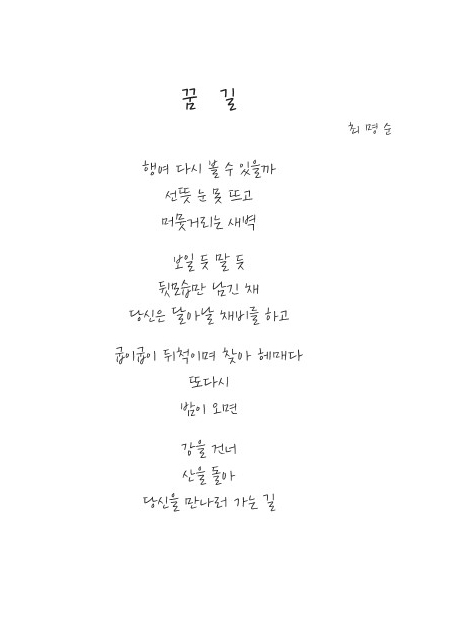 꿈 길
최명순
행여 다시 볼 수 있을까
선뜻 눈 못 뜨고
머뭇거리는 새벽
보일 듯 말 듯
뒷모습만 남긴 채
당신은 달아날 채비를 하고
굽이굽이 뒤척이며 찾아 헤매다
또다시
밤이 오면
강을 건너
산을 돌아
당신을 만나러 가는 길